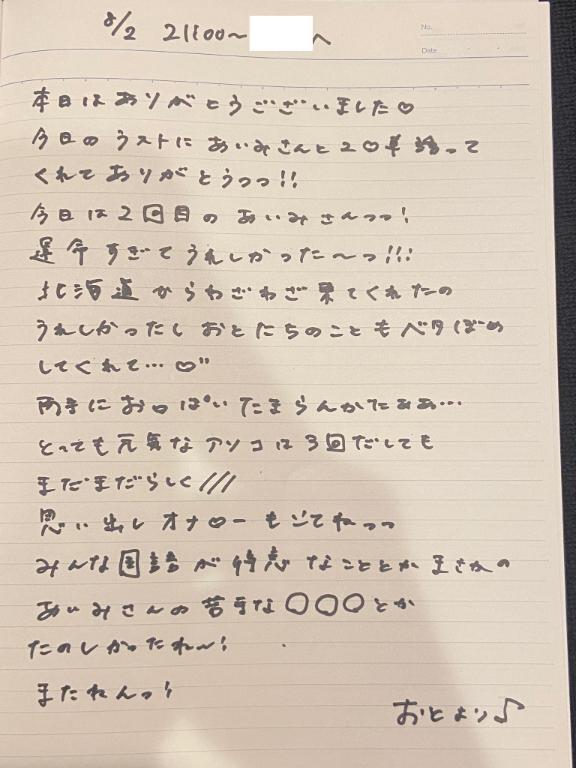 No.
Date
8/2 21:00～ へ
本日はありがとうございました♡
今日のラストにあいみさんと2♡単 って
くれてありがとうっっ!!
今日は2回目のあいみさんっっ!
運命すぎてうれしかった〜っ!!!
北海道からわざわざ来てくれたの
うれしかったし おとたちのこともベタぼめ
してくれて…♡"
両手にお○ぱい たまらんかたぁぁ…
とっても元気なアソコは3回だしても
まだまだらしく///
思い出しオナ○ーもしてねっっ
みんな国語が得意なこととかまさかの
あいみさんの苦手な○○○とか
たのしかったね〜!
またねんっ!
おとより♪